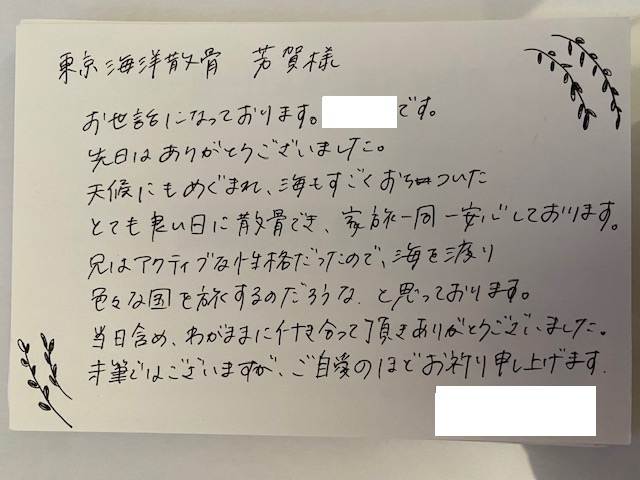 東京海洋散骨 芳賀様
お世話になっております。です。
先日はありがとうございました。
天候にもめぐまれ、海もすごくおちついた
とても良い日に散骨でき、家族一同一安心しております。
兄はアクティブな性格だったので、海を渡り
色々な国を旅するのだろうな、と思っております。
当日含め、わがままに付き合って頂きありがとうございました。
乱筆ではございますが、ご自愛のほどお祈り申し上げます.